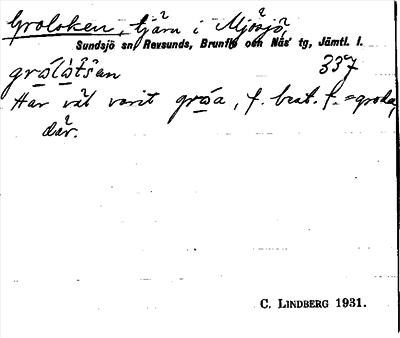 Groloken, tjärn i Mjösjö,
Sundsjö sn, Revsunds, Brunflo och Näs' tg, Jämtl. l.
gròlòtšan 337
Har väl varit gròa, f. best. f. = groda,
där.
C. LINDBERG 1931.